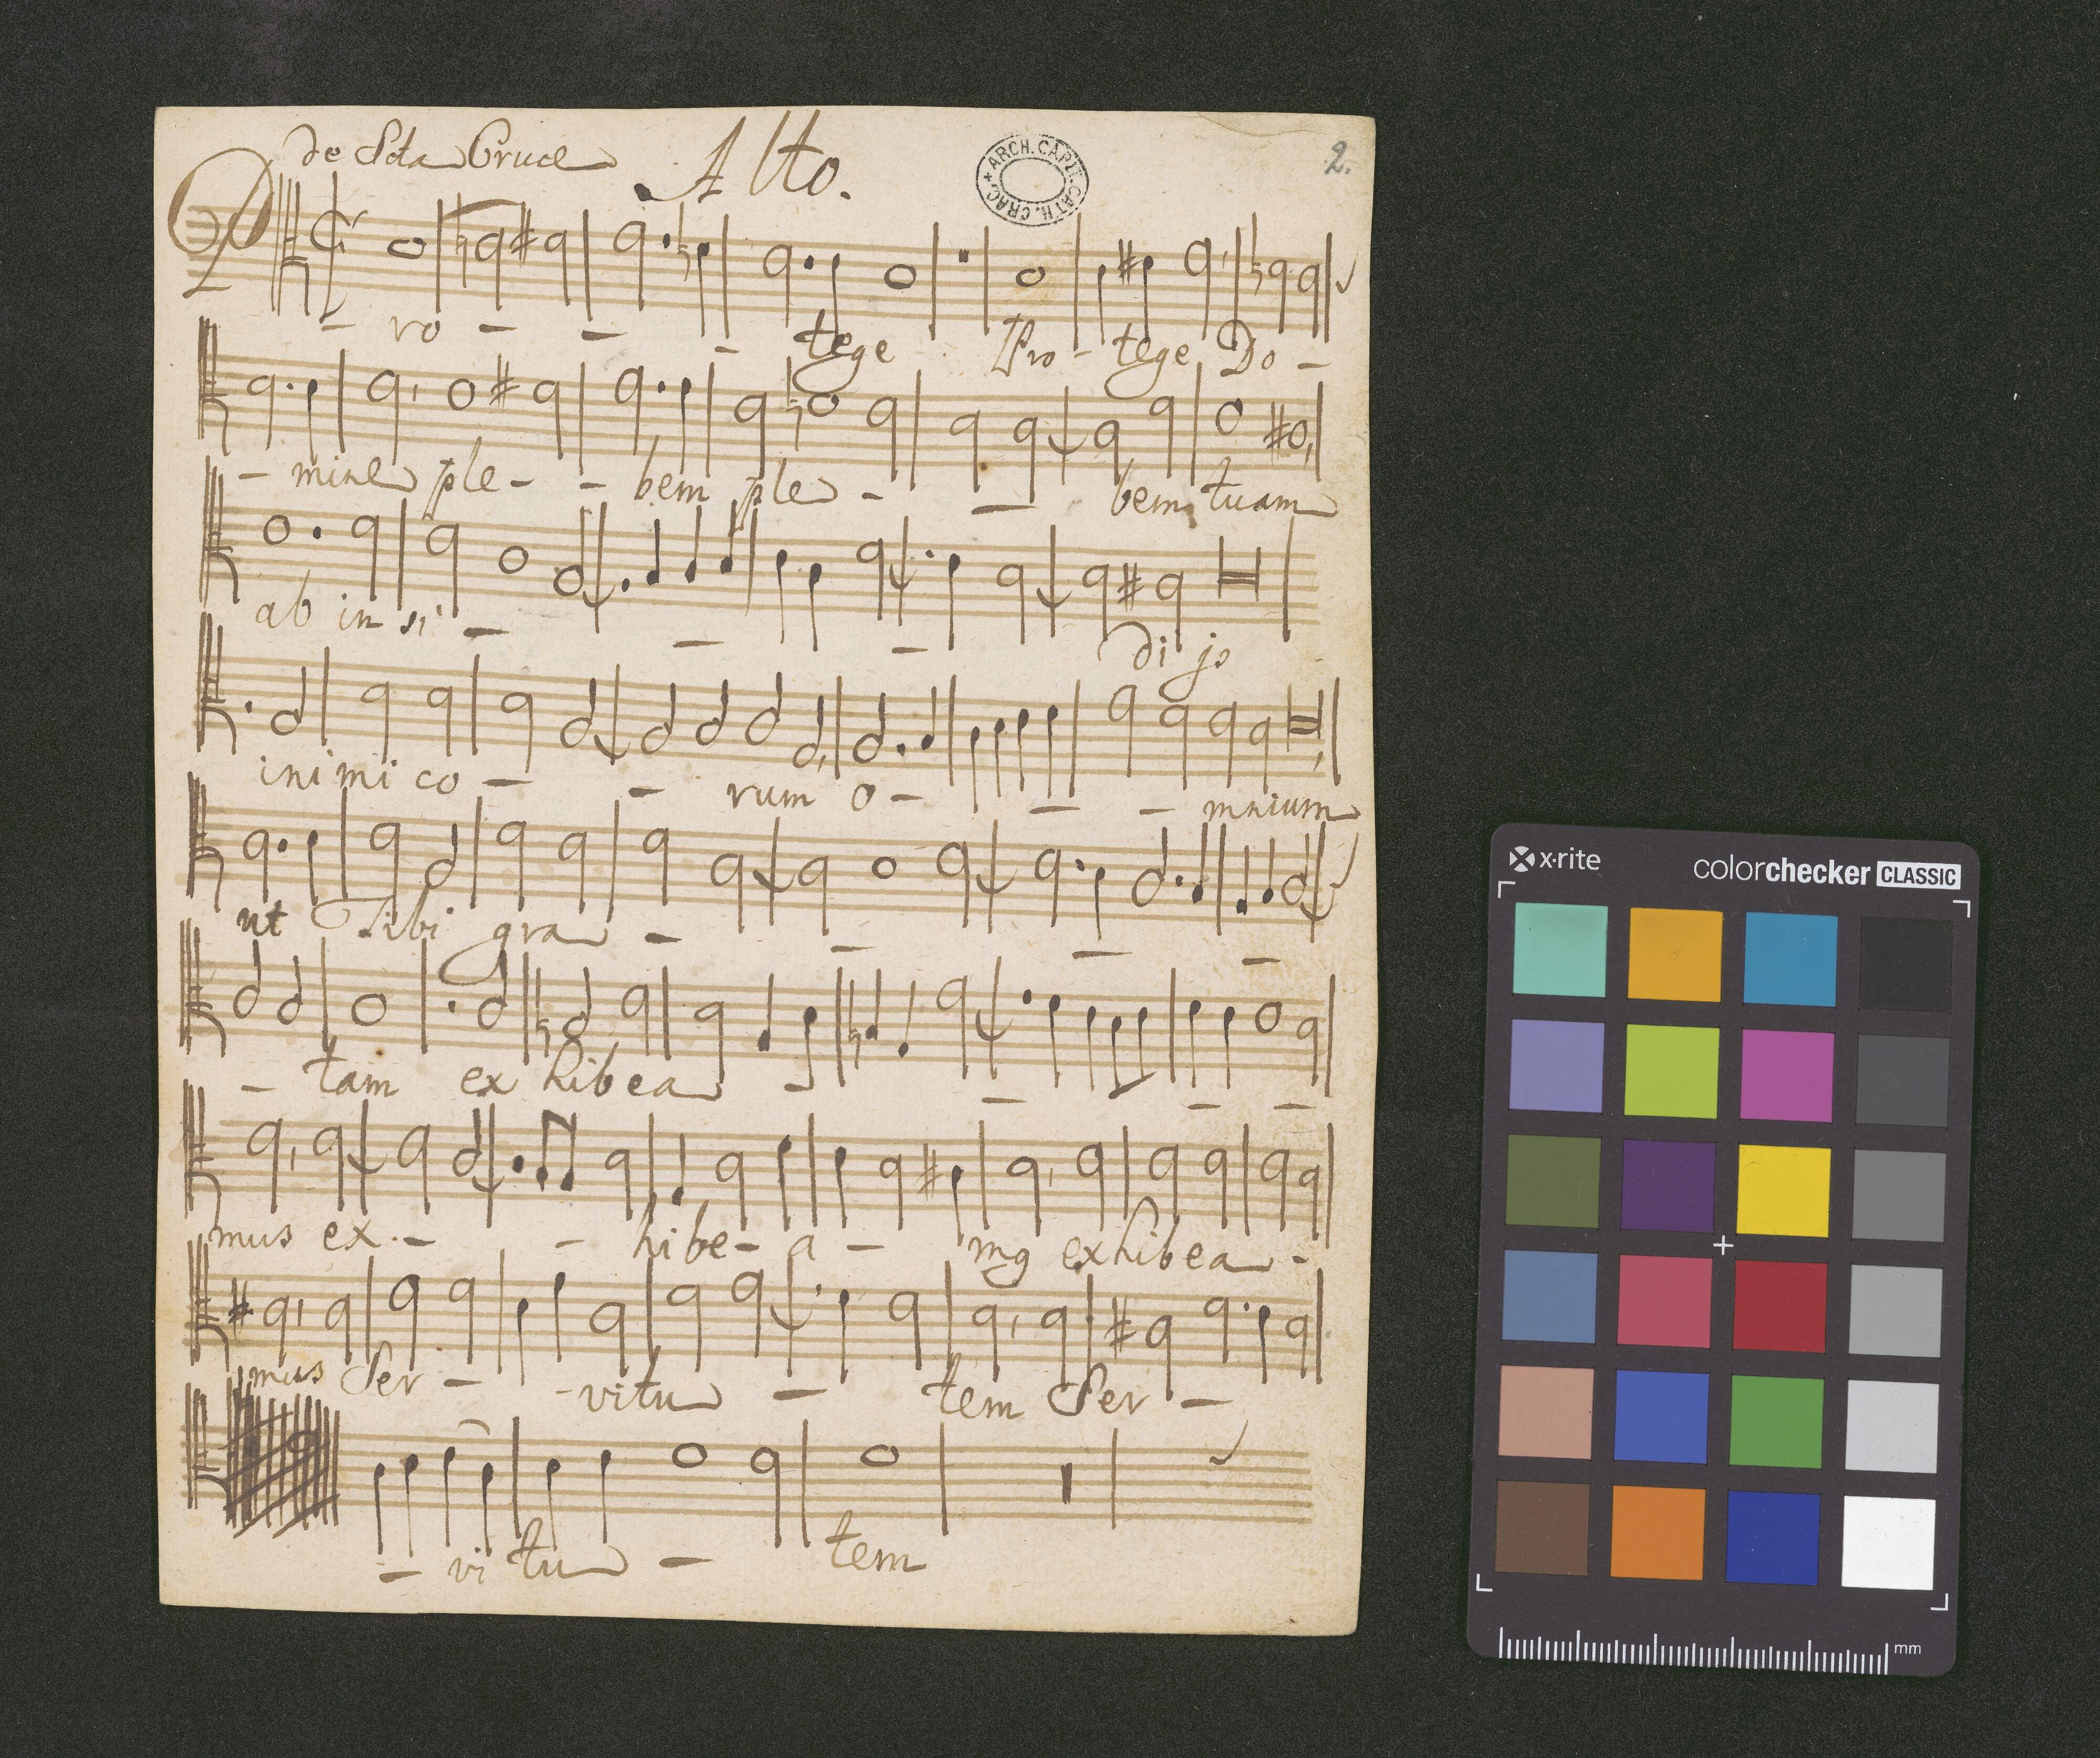 de Scta Cruce Alto.
ARCH. CAPIT. CATH. CRAC. +
2.
P - ro - - - tege Pro - tege Do -
- mine ple - - bem ple - - bem tuam
ab in si - - - di js
inimi co - - rum o - - - mnium
ut Tibi gra - - - -
- tam ex hibea - - - -
mus ex - - hi be - a - mg exhibea -
mus Ser - - vitu - tem Ser -
- vi tu - tem
x·rite colorchecker CLASSIC
mm